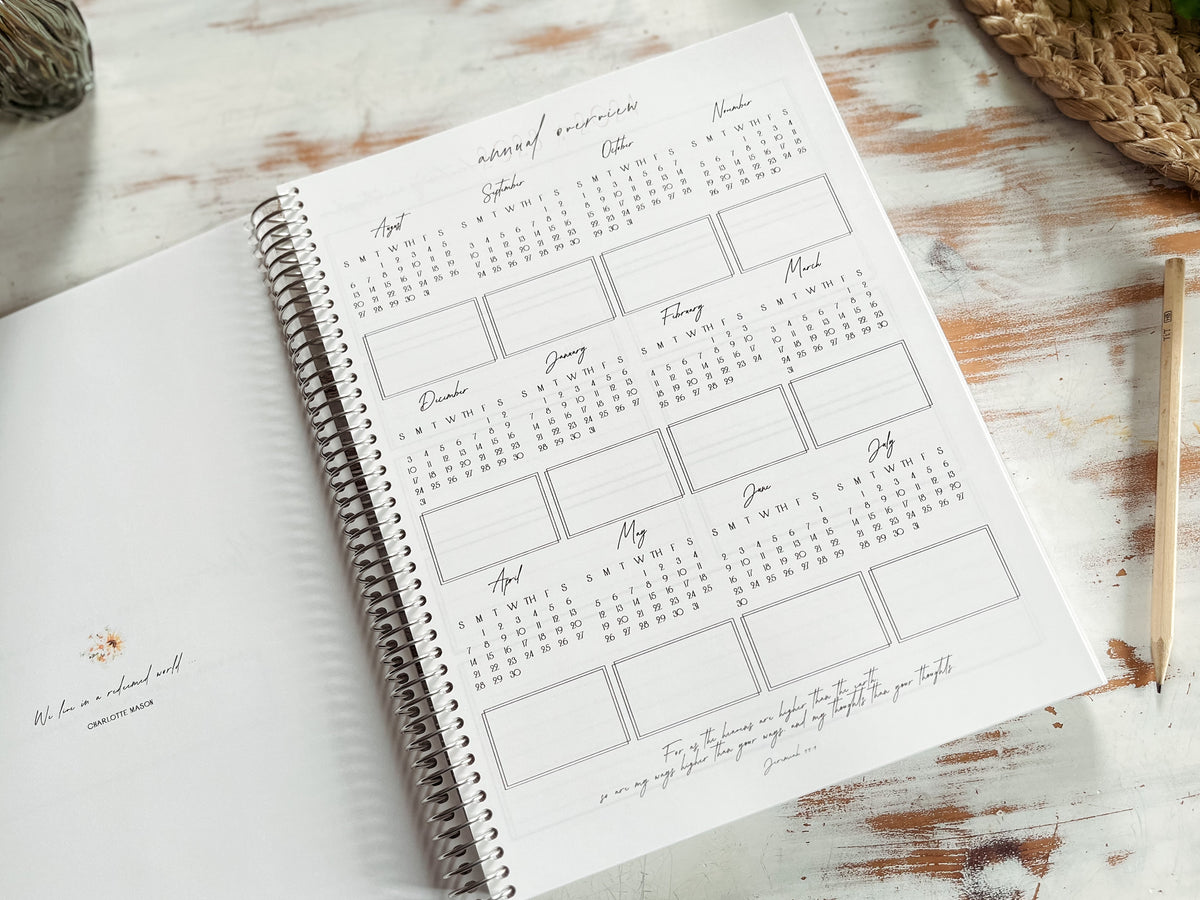 We live in a redeemed world...
CHARLOTTE MASON
annual overview
August
S M T W TH F S
1 2 3 4 5
6 7 8 9 10 11 12
13 14 15 16 17 18 19
20 21 22 23 24 25 26
27 28 29 30 31
September
S M T W TH F S
1 2
3 4 5 6 7 8 9
10 11 12 13 14 15 16
17 18 19 20 21 22 23
24 25 26 27 28 29 30
October
S M T W TH F S
1 2 3 4 5 6 7
8 9 10 11 12 13 14
15 16 17 18 19 20 21
22 23 24 25 26 27 28
29 30 31
November
S M T W TH F S
1 2 3 4
5 6 7 8 9 10 11
12 13 14 15 16 17 18
19 20 21 22 23 24 25
26 27 28 29 30
December
S M T W TH F S
1 2
3 4 5 6 7 8 9
10 11 12 13 14 15 16
17 18 19 20 21 22 23
24 25 26 27 28 29 30
31
January
S M T W TH F S
1 2 3 4 5 6
7 8 9 10 11 12 13
14 15 16 17 18 19 20
21 22 23 24 25 26 27
28 29 30 31
February
S M T W TH F S
1 2 3
4 5 6 7 8 9 10
11 12 13 14 15 16 17
18 19 20 21 22 23 24
25 26 27 28 29
March
S M T W TH F S
1 2
3 4 5 6 7 8 9
10 11 12 13 14 15 16
17 18 19 20 21 22 23
24 25 26 27 28 29 30
31
April
S M T W TH F S
1 2 3 4 5 6
7 8 9 10 11 12 13
14 15 16 17 18 19 20
21 22 23 24 25 26 27
28 29 30
May
S M T W TH F S
1 2 3 4
5 6 7 8 9 10 11
12 13 14 15 16 17 18
19 20 21 22 23 24 25
26 27 28 29 30 31
June
S M T W TH F S
1
2 3 4 5 6 7 8
9 10 11 12 13 14 15
16 17 18 19 20 21 22
23 24 25 26 27 28 29
30
July
S M T W TH F S
1 2 3 4 5 6
7 8 9 10 11 12 13
14 15 16 17 18 19 20
21 22 23 24 25 26 27
28 29 30 31
For as the heavens are higher than the earth,
so are my ways higher than your ways, and my thoughts than your thoughts
Jeremiah